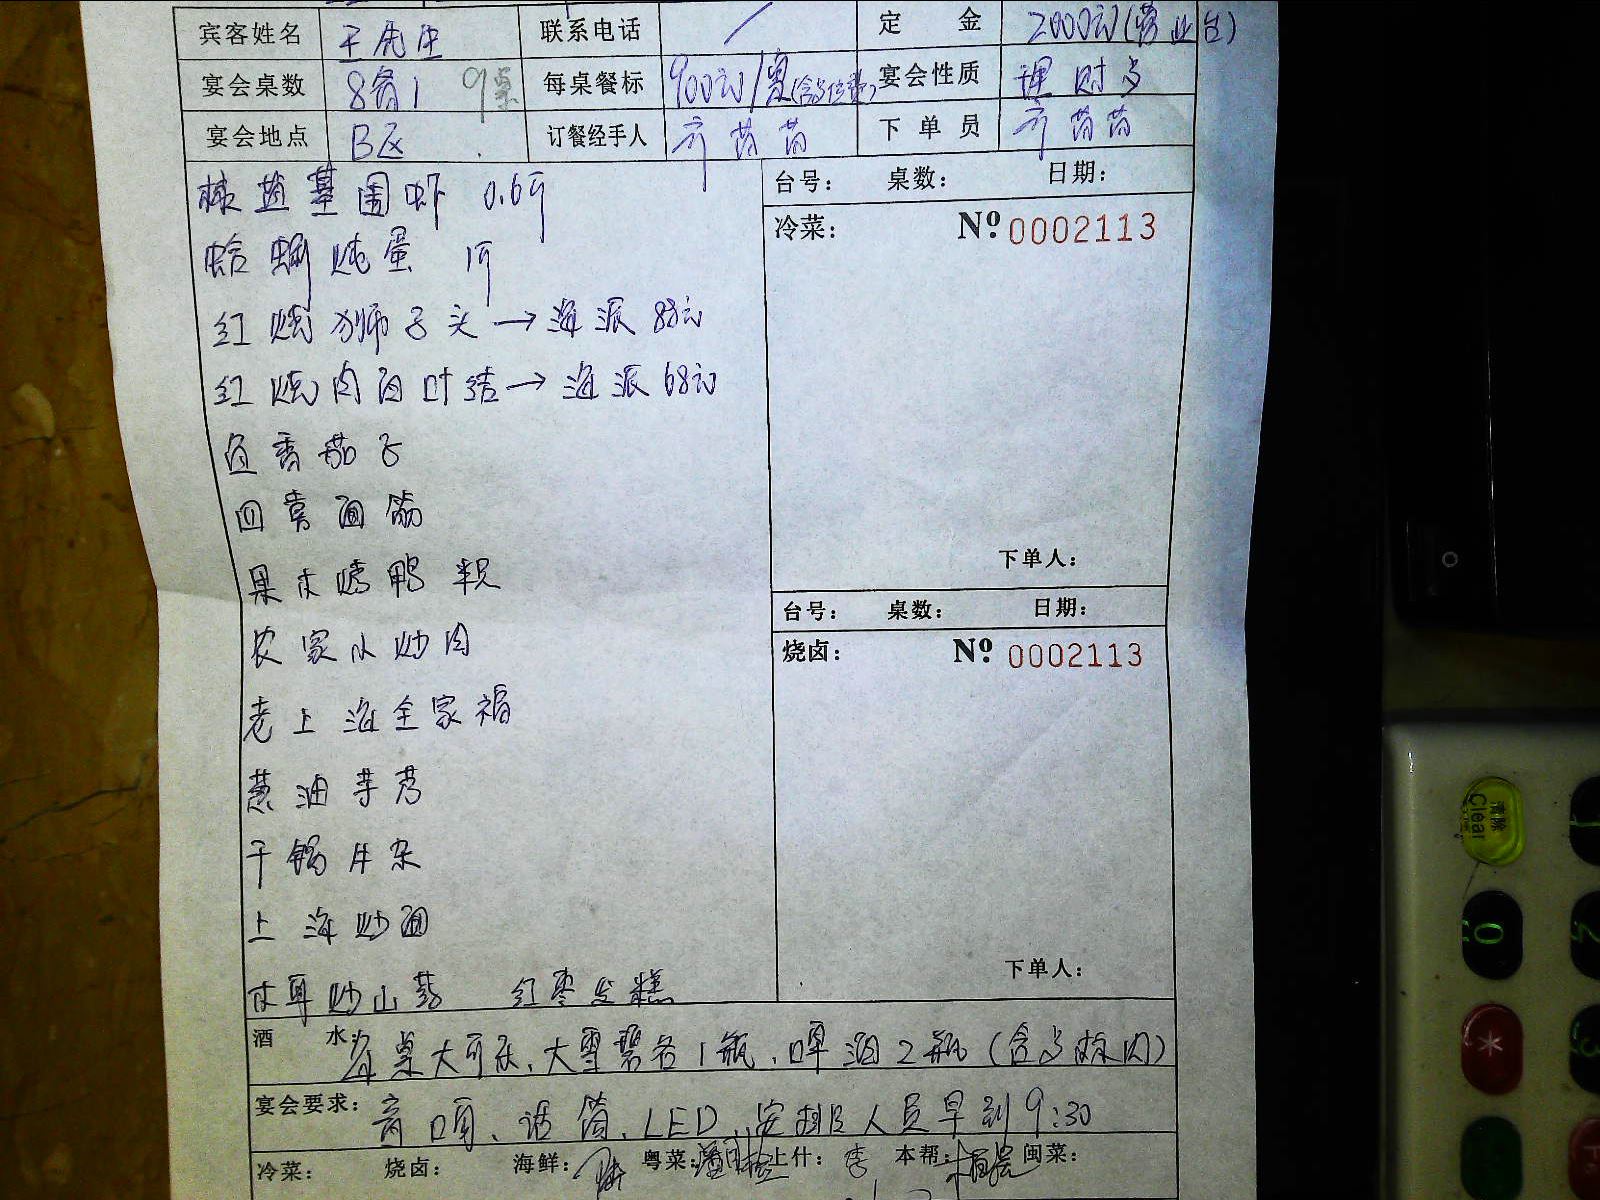 宾客姓名 王先生 联系电话 / 定 金 2000元(营业台)
宴会桌数 8备1 9桌 每桌餐标 900元/桌(含与位费) 宴会性质
宴会地点 B区 订餐经手人 齐茵茵 下单员 齐茵茵
台号： 桌数： 日期：
冷菜： Nº 0002113
椒盐基围虾 0.6斤
蛤蜊炖蛋 1斤
红烧狮子头→海派 88元
红烧肉百叶结→海派 68元
鱼香茄子
四喜面筋
果木烤鸭 半只
农家小炒肉
老上海全家福
葱油芋艿
干锅牛杂
上海炒面
木耳炒山药 红枣发糕
下单人：
台号： 桌数： 日期：
烧卤： Nº 0002113
下单人：
酒 水： 每桌大可乐、大雪碧各1瓶、啤酒2瓶(含与标内)
宴会要求： 音响、话筒、LED、安排人员早到9:30
冷菜： 烧卤： 海鲜： 粤菜： 上什： 李 本帮： 闽菜：
清除
Clear
0
2
3
*